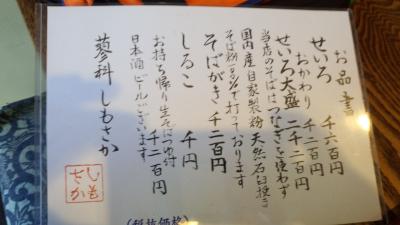 お品書
せいろ 千六百円
おかわり 千二百円
せいろ大盛 二千二百円
当店のそばはつなぎを使わず
国内産自家製粉天然石臼挽き
そば粉100%で打っております
そばがき 千二百円
しるこ 千円
お持ち帰り生そばつゆ付 千二百円
日本酒ビールございます
蓼科 しもさか
しもさか
(税抜価格)